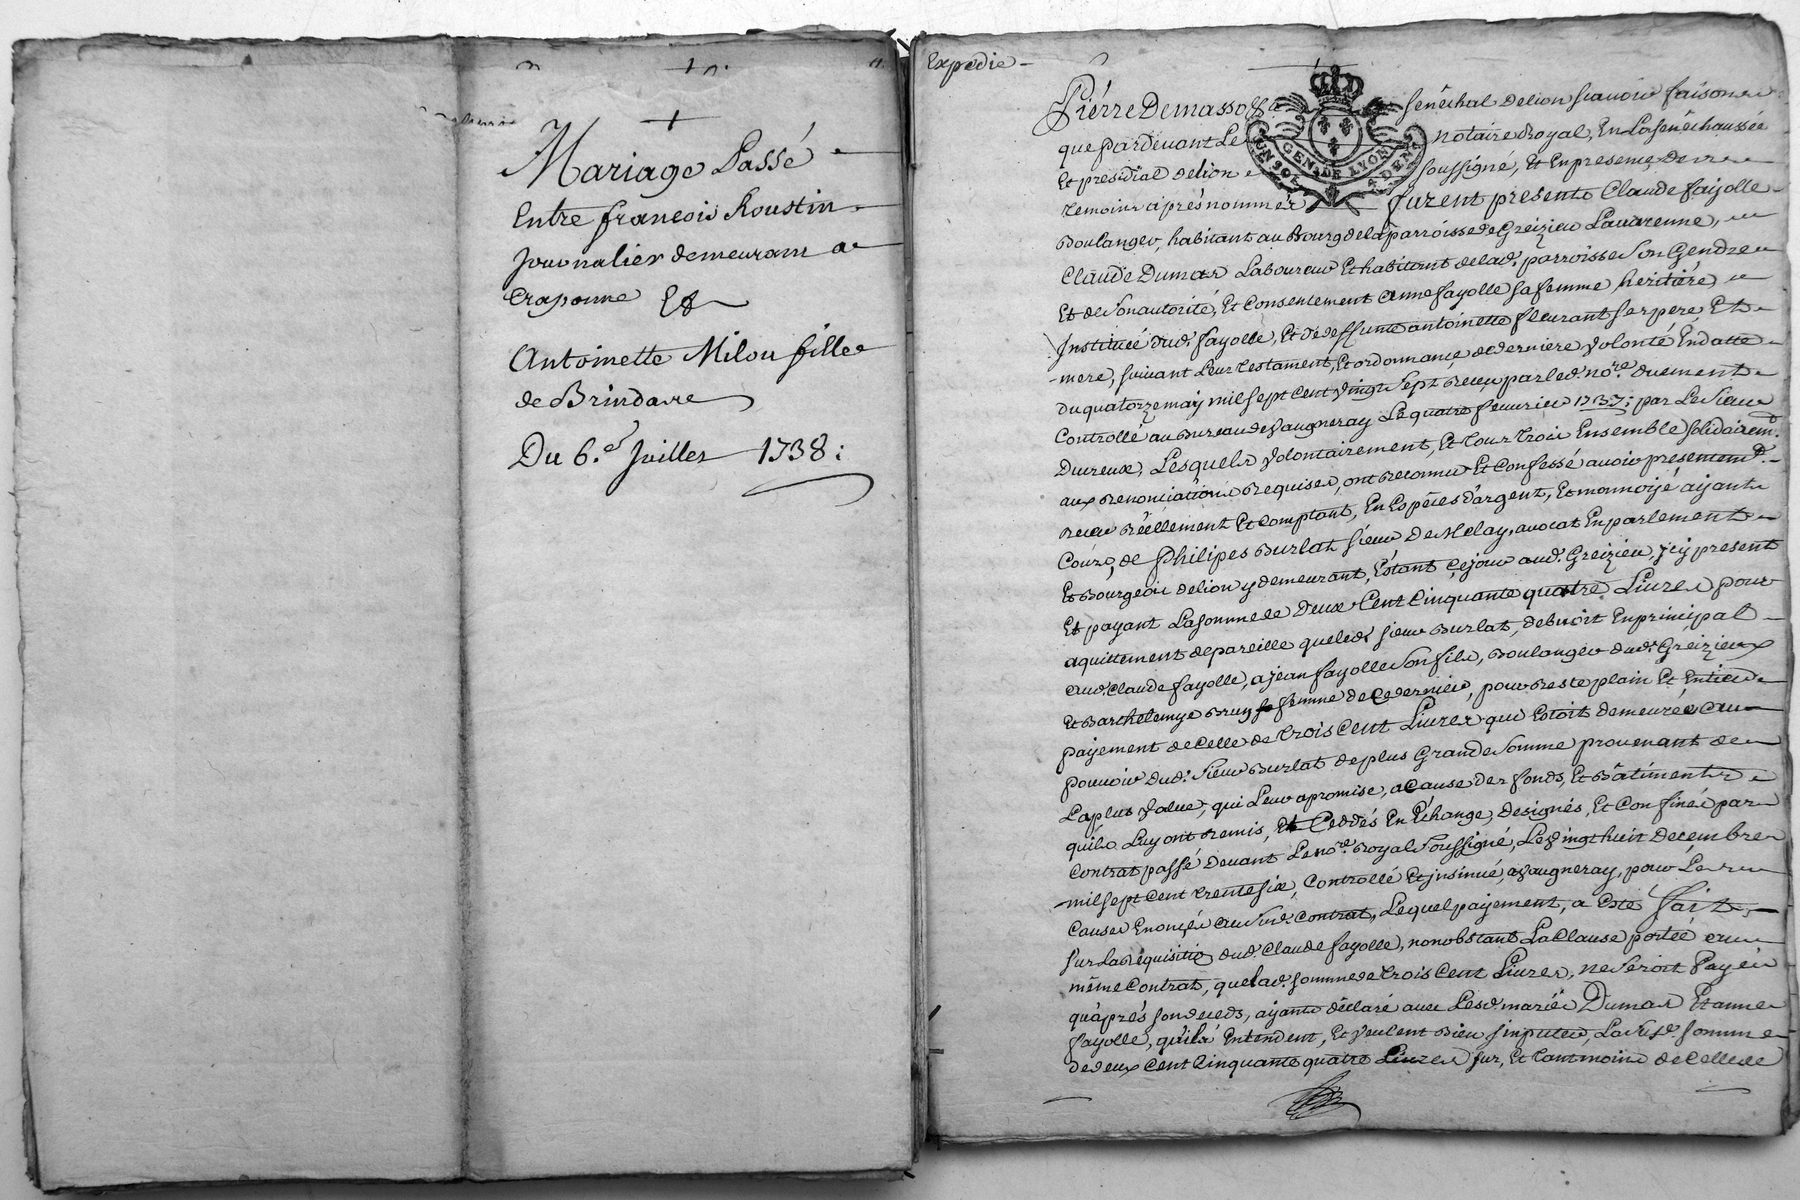 Mariage Passé
Entre françois Roustin
Journalier demeurant a
Craponne Et
Antoinette Milou fille
de Brindave
Du 6.e Juillet 1738:
Expedie
Pierre Demasso
Sénéchal delion scavoir faisons
que pardevant Le notaire Royal, En La sénéchaussée
Et présidial delion soussigné, Et En presence des
temoins après nommés furent présents Claude fayolle
UN SOL GEN. DE LYON
Boulanger, habitant au Bourg de la parroisse de Greizieu Lavarenne,
Claude Dumas Laboureur Et habitant de lad. parroisse son Gendre
Et de son autorité, Et Consentement anne fayolle sa femme heritiére
Instituée dud. fayolle, Et de deffunte antoinette fleurant ses pere Et
mere, suivant Leur testament, Et ordonnance de derniere Volonté En datte
du quatorze may mil sept cent vingt sept Receu par led. nore. duement
Controllé au Bureau de Vaugneray Le quatre fevrier 1737; par Le Sieur
Ducreux, Lesquels Volontairement, Et tous trois Ensemble solidairemt.
aux Renonciations Requises, ont Reconnu Et Confessé avoir présentemt.
Receu Réellement Et Comptant, En Espéces d'argent, Et monnoyé ayant
Cours, de Philipes Burlat sieur DeMclay, avocat En parlement
Et Bourgeois delion y demeurant, Estant ce jour aud. Greizieu, icy present
Et payant La somme de Deux Cent Cinquante quatre Livres pour
aquittement de pareille que led. sieur Burlat, debvoit En principal
aud. Claude fayolle, a jean fayolle son fils, Boulanger dud. Greizieux
Et Barthelemye Bruy femme de Ce dernier, pour Reste plain Et Entier
payement de Celle de trois Cent Livres que Estoit demeurée au
pouvoir dud. sieur Burlat de plus Grande Somme provenant de
La plus Value, qui Leur a promise, a Cause des fonds, Et Bâtiments
qu'ils Luy ont Remis, Et Ceddés En Echange, designés, Et Confinés par
Contrat passé devant Le nore. Royal Soussigné, Le Vingt huit decembre
mil sept Cent trente six, Controllé Et jnsinué, a Vaugneray, pour Les
Causes Enoncés au susd. Contrat, Lequel payement, a Esté fait
sur La Réquisition dud. Claude fayolle, nonobstant La Clause portée au
même Contrat, que Lad. somme de trois Cent Livres, ne seroit Payée
qu'après son deceds, ayant déclaré avec Lesd. mariés Dumas Et anne
fayolle, qu'ils Entendent, Et Veulent Bien jmputer, La susd. somme
de deux Cent Cinquante quatre Livres sur, Et tantmoins de Celle de